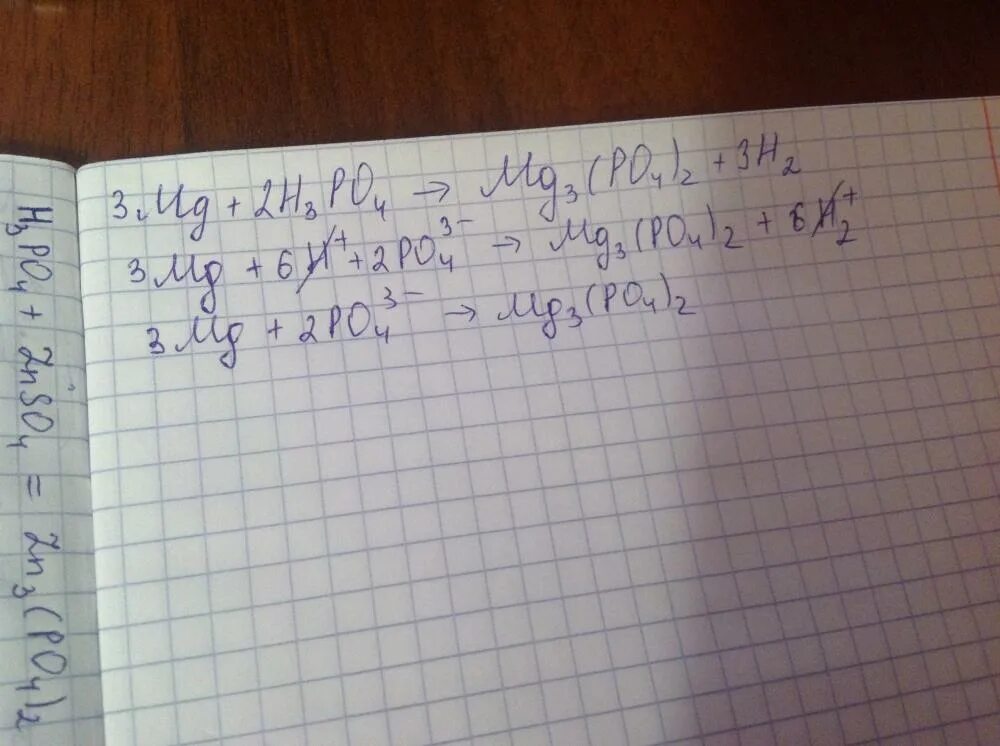 3Mg + 2H₃PO₄ → Mg₃(PO₄)₂ + 3H₂
3Mg + 6H⁺ + 2PO₄³⁻ → Mg₃(PO₄)₂ + 6H₂⁺
3Mg + 2PO₄³⁻ → Mg₃(PO₄)₂
H₃PO₄ + ZnSO₄ = Zn₃(PO₄)₂